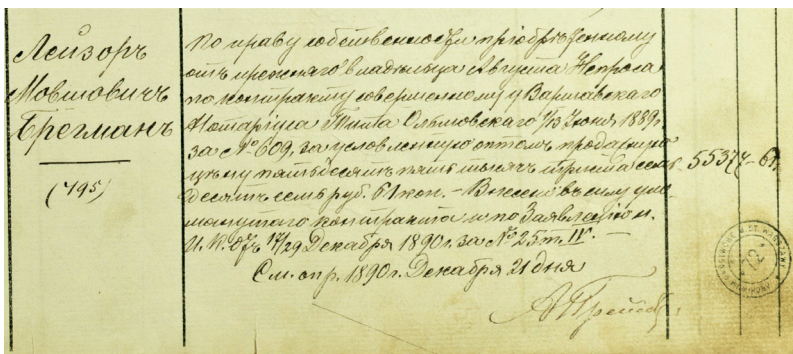 Лейзоръ
Мовшовичъ
Брегманъ
(795)
По праву собственности пріобрѣтенному
отъ прежняго владѣльца Августа
по контракту совершенному у Варшавскаго
Нотаріуса Ольшовскаго 1/13 Іюня 1889г.
за № 609, за условленную оптомъ продажную
цѣну пятьдесятъ пять тысячъ триста семь
десятъ семь руб. 61 коп. – Внесено въ силу упо
мянутаго контракта и по Заявленію н.
17/29 Декабря 1890г. за № 25 т. IV. –
См. опр. 1890г. Декабря 21 дня
55377 – 61
72